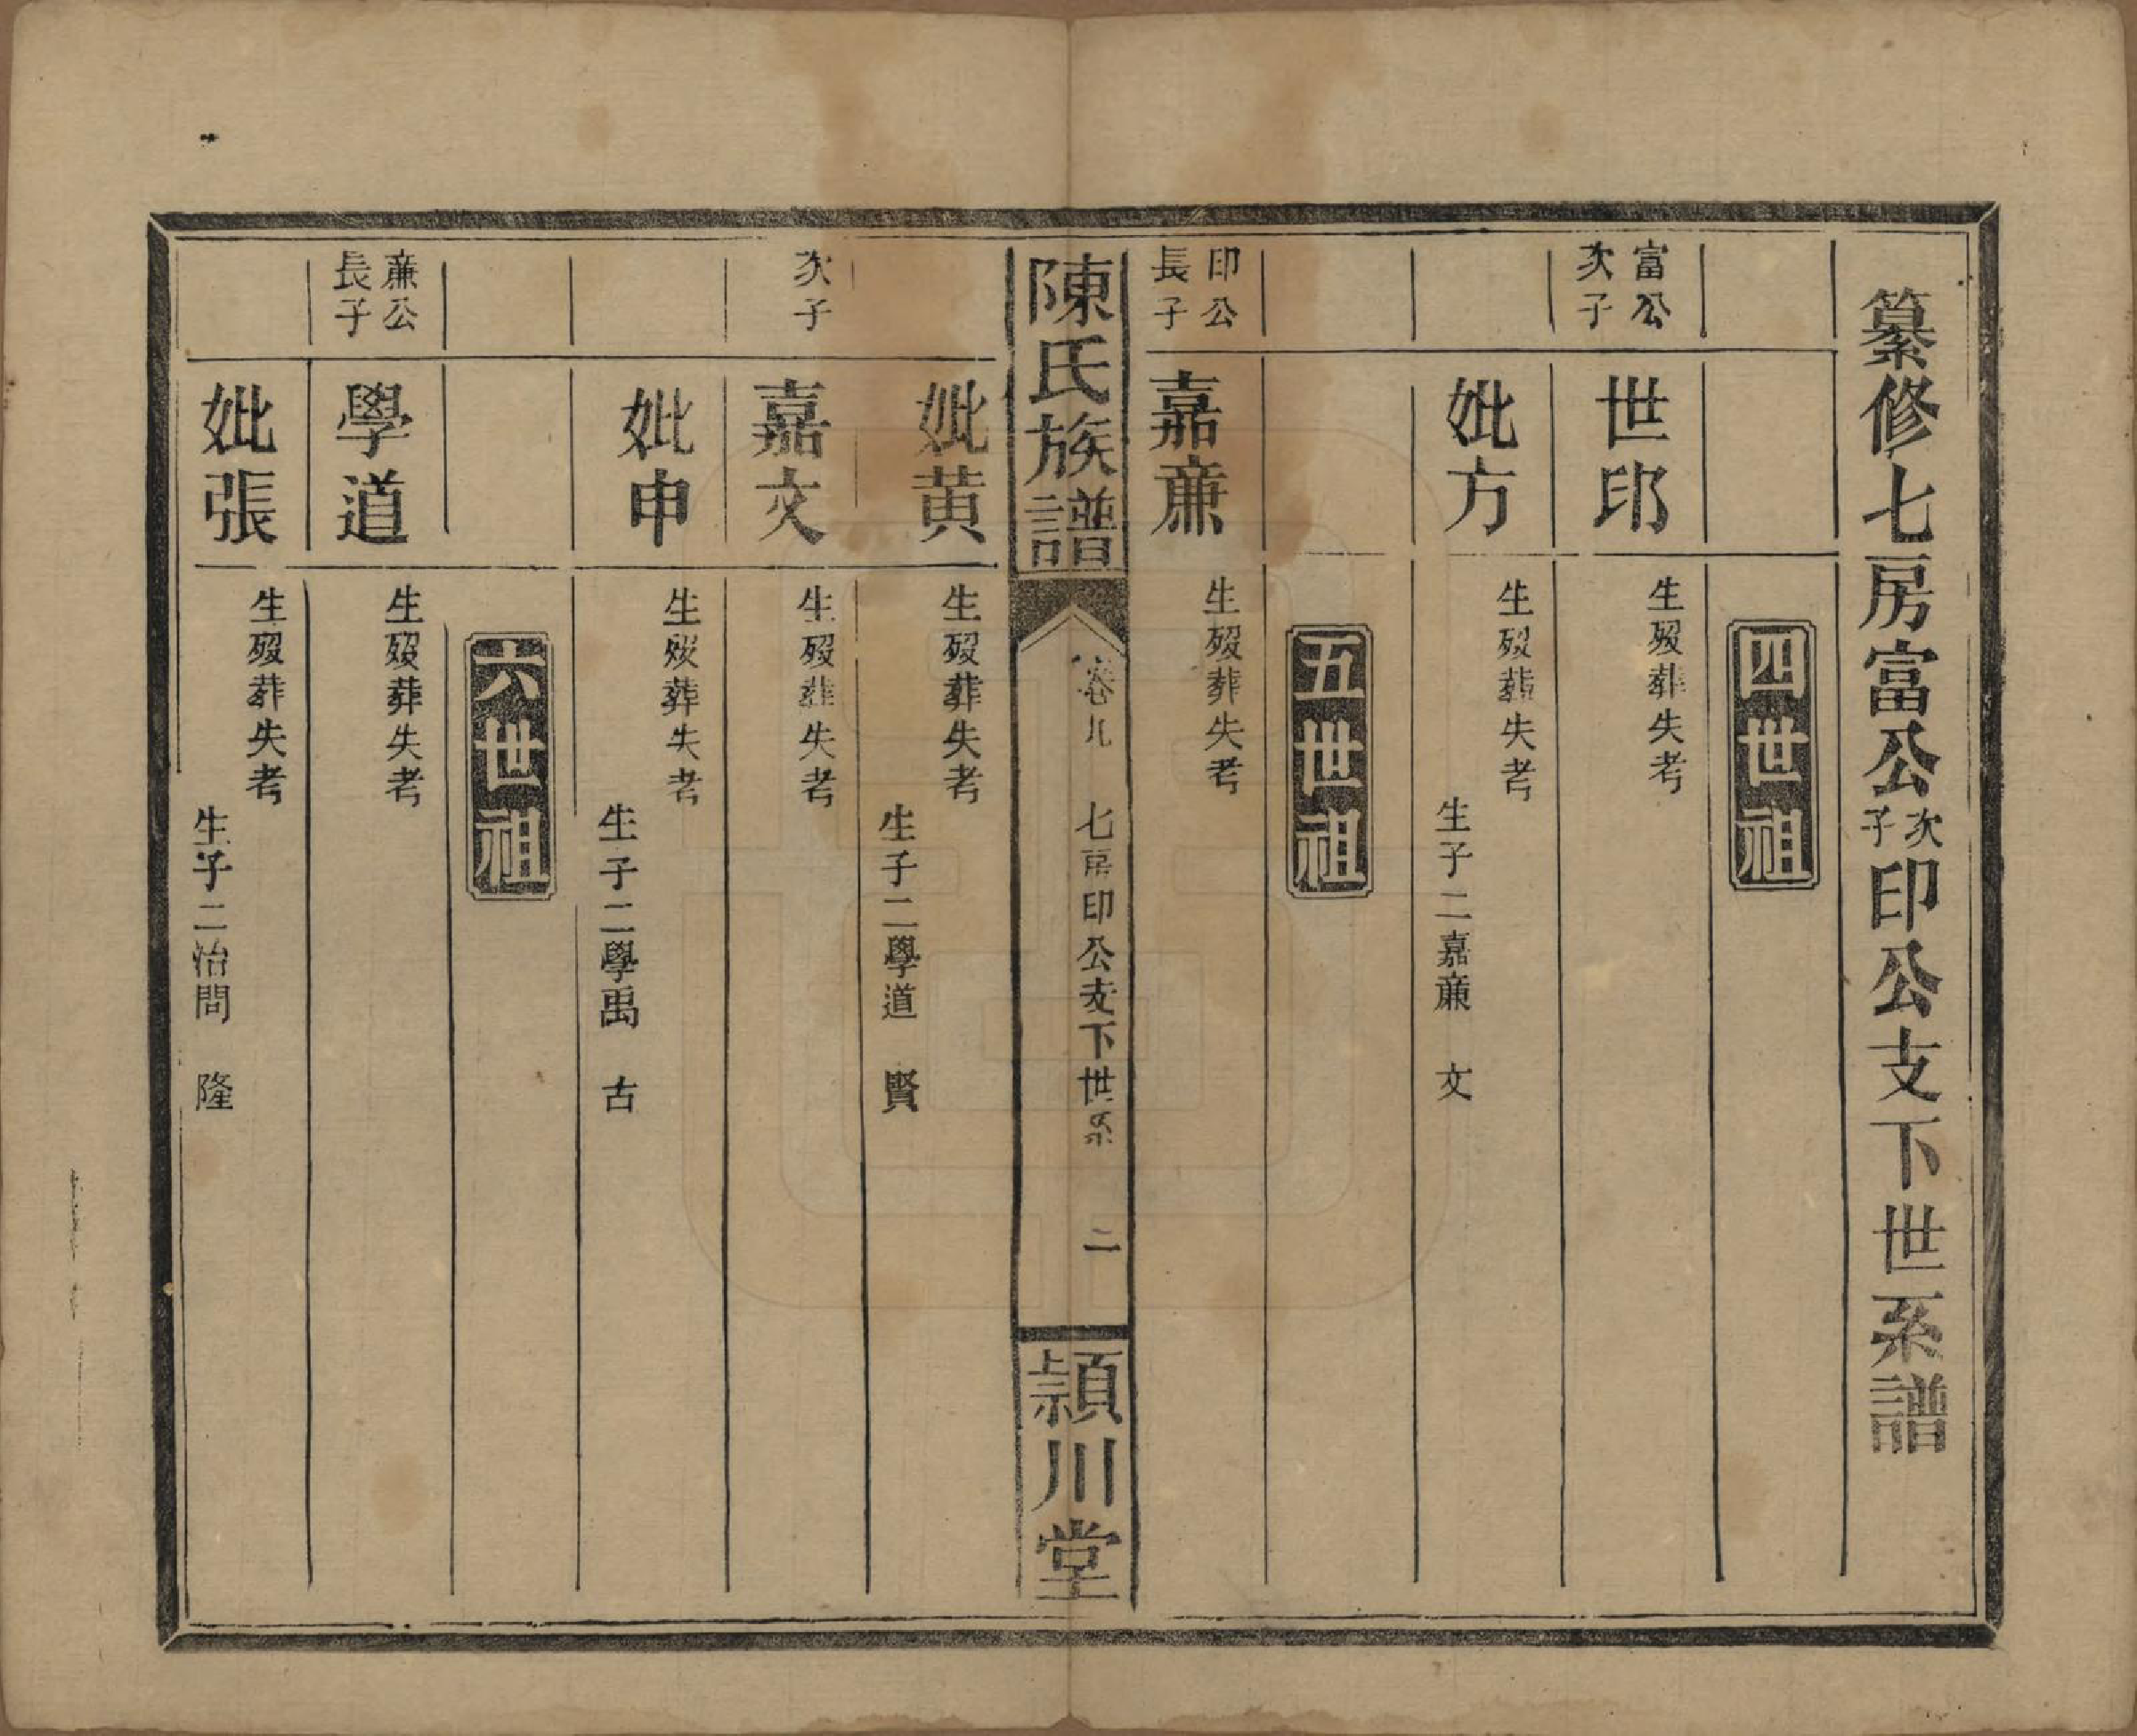 纂修七房富公次子印公支下世系譜
四世祖
富公次子
世印
生歿葬失考
妣方
生歿葬失考
生子二嘉亷 文
五世祖
印公長子
嘉亷
生歿葬失考
陳氏族譜
卷九 七房印公支下世系 二
潁川堂
妣黄
生歿葬失考
生子二學道 賢
次子
嘉文
生歿葬失考
妣申
生歿葬失考
生子二學禹 古
六世祖
亷公長子
學道
生歿葬失考
妣張
生歿葬失考
生子二治問 隆